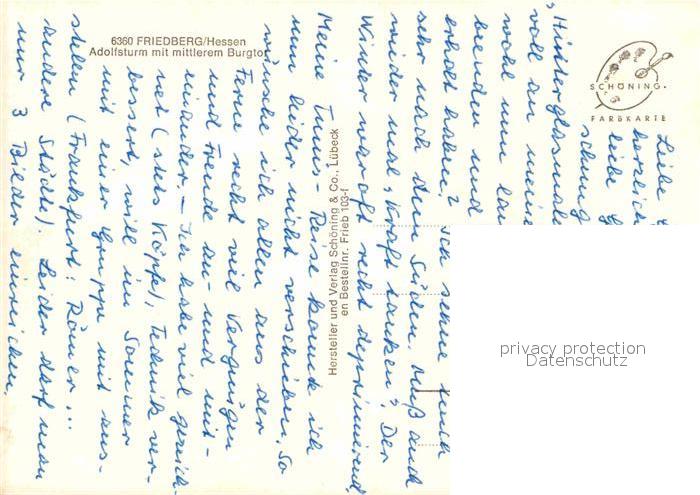 6360 FRIEDBERG/Hessen
Adolfsturm mit mittlerem Burgtor
SCHÖNING
FARBKARTE
Hersteller und Verlag Schöning & Co., Lübeck
en Bestellnr. Frieb 103-f
privacy protection
Datenschutz
Liebe
herzlich
liebe
schung
"Hinterglasmale
voll an meine
wohl nun lan
beenden und
erholt haben? Ich sehne mich
sehr nach dem Süden. Muß auch
wieder mal "Kraft tanken". Der
Winter war oft recht deprimierend.
Meine Tunis-Reise konnte ich
nun leider nicht verschieben. So
wünsche ich allen aus der
Ferne recht viel Vergnügen
und Freude an- und mit-
einander. - Ich habe viel gezeich-
net (stets Köpfe), Technik ver-
bessert, will im Sommer
mit einer Gruppe mit aus-
stellen (Frankfurt: Römer...
andere Städte). Leider darf man
nur 3 Bilder einreichen.